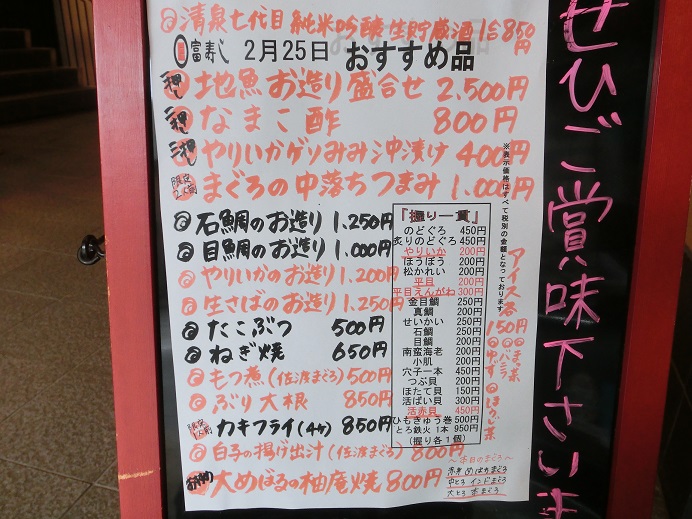 清泉七代目 純米吟醸 生貯蔵酒 1合 850円
富寿し 2月25日 おすすめ品
地魚お造り盛合せ 2,500円
なまこ酢 800円
やりいかゲソみみ沖漬け 400円
まぐろの中落ちつまみ 1,000円
石鯛のお造り 1,250円
目鯛のお造り 1,000円
やりいかのお造り 1,200円
生さばのお造り 1,250円
たこぶつ 500円
ねぎ焼 650円
もつ煮(佐渡まぐろ) 500円
ぶり大根 850円
カキフライ(4ヶ) 850円
白子の揚げ出汁(佐渡まぐろ) 800円
大めばるの柚庵焼 800円
※表示価格はすべて税別の金額となっております
『握り一貫』
のどぐろ 450円
炙りのどぐろ 450円
やりいか 200円
ほうぼう 200円
松かれい 200円
平目 200円
平目えんがわ 300円
金目鯛 250円
真鯛 200円
せいかい 250円
石鯛 250円
目鯛 200円
南蛮海老 200円
小肌 200円
穴子一本 450円
つぶ貝 200円
ほたて貝 150円
活ばい貝 300円
活赤貝 450円
ひもきゅう巻 500円
とろ鉄火 1本 950円
(握り各1個)
アイス各150円
まっ茶
バニラ
ゆず
ほうじ茶
~本日のまぐろ~
赤身 めばちまぐろ
中とろ インドまぐろ
大とろ 本まぐろ
ぜひご賞味下さいま